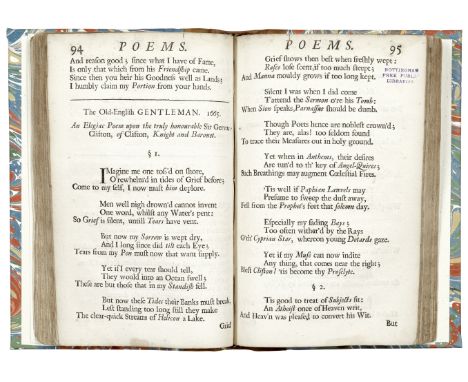 94 POEMS.
And reason good; since what I have of Fame,
Is only that which from his Friendship came.
Since then you heir his Goodness well as Lands;
I humbly claim my Portion from your hands.
The Old-English GENTLEMAN. 1665.
An Elegiac Poem upon the truly honourable Sir Gervas
Clifton, of Clifton, Knight and Baronet.
§ 1.
IMagine me one tos'd on shore,
O'rewhelm'd in tides of Grief before;
Come to my self, I now must him deplore.
Men well nigh drown'd cannot invent
One word, whilst any Water's pent:
So Grief is silent, until Tears have vent.
But now my Sorrow is wept dry,
And I long since did tilt each Eye;
Tears from my Pen must now that want supply.
Yet if I every tear should tell,
They would into an Ocean swell;
These are but those that in my Standish fell.
But now these Tides their Banks must break,
Left standing too long still they make
The clear-quick Stream of Helicon a Lake.
Grief
POEMS. 95
Grief shows then best when freshly wept:
Roses lose scent, if too much sleept;
And Manna mouldy grows if too long kept.
NOTTINGHAM
FREE PUBLIC
LIBRARIES
Silent I was when I did come
T'attend the Sermon & to his Tomb;
When Sion speaks, Parnassus should be dumb.
Though Poets hence are noblest crown'd;
They are, alas! too seldom found
To trace their Measures out in holy ground.
Yet when in Anthems, their desires
Are tun'd to th' key of Angel-Quires;
Such Breathings may augment Cœlestial Fires.
'Tis well if Paphian Lawrels may
Presume to sweep the dust away,
Fell from the Prophet's feet that solemn day.
Especially my fading Bays;
Too often wither'd by the Rays
O'th' Cyprian Star, whereon young Dotards gaze.
Yet if my Muse can now indite
Any thing, that comes near the right;
Blest Clifton! 'tis become thy Proselyte.
§ 2.
Tis good to treat of Subjects fit:
An Atheist once of Heaven writ,
And Heav'n was pleased to convert his Wit.
But